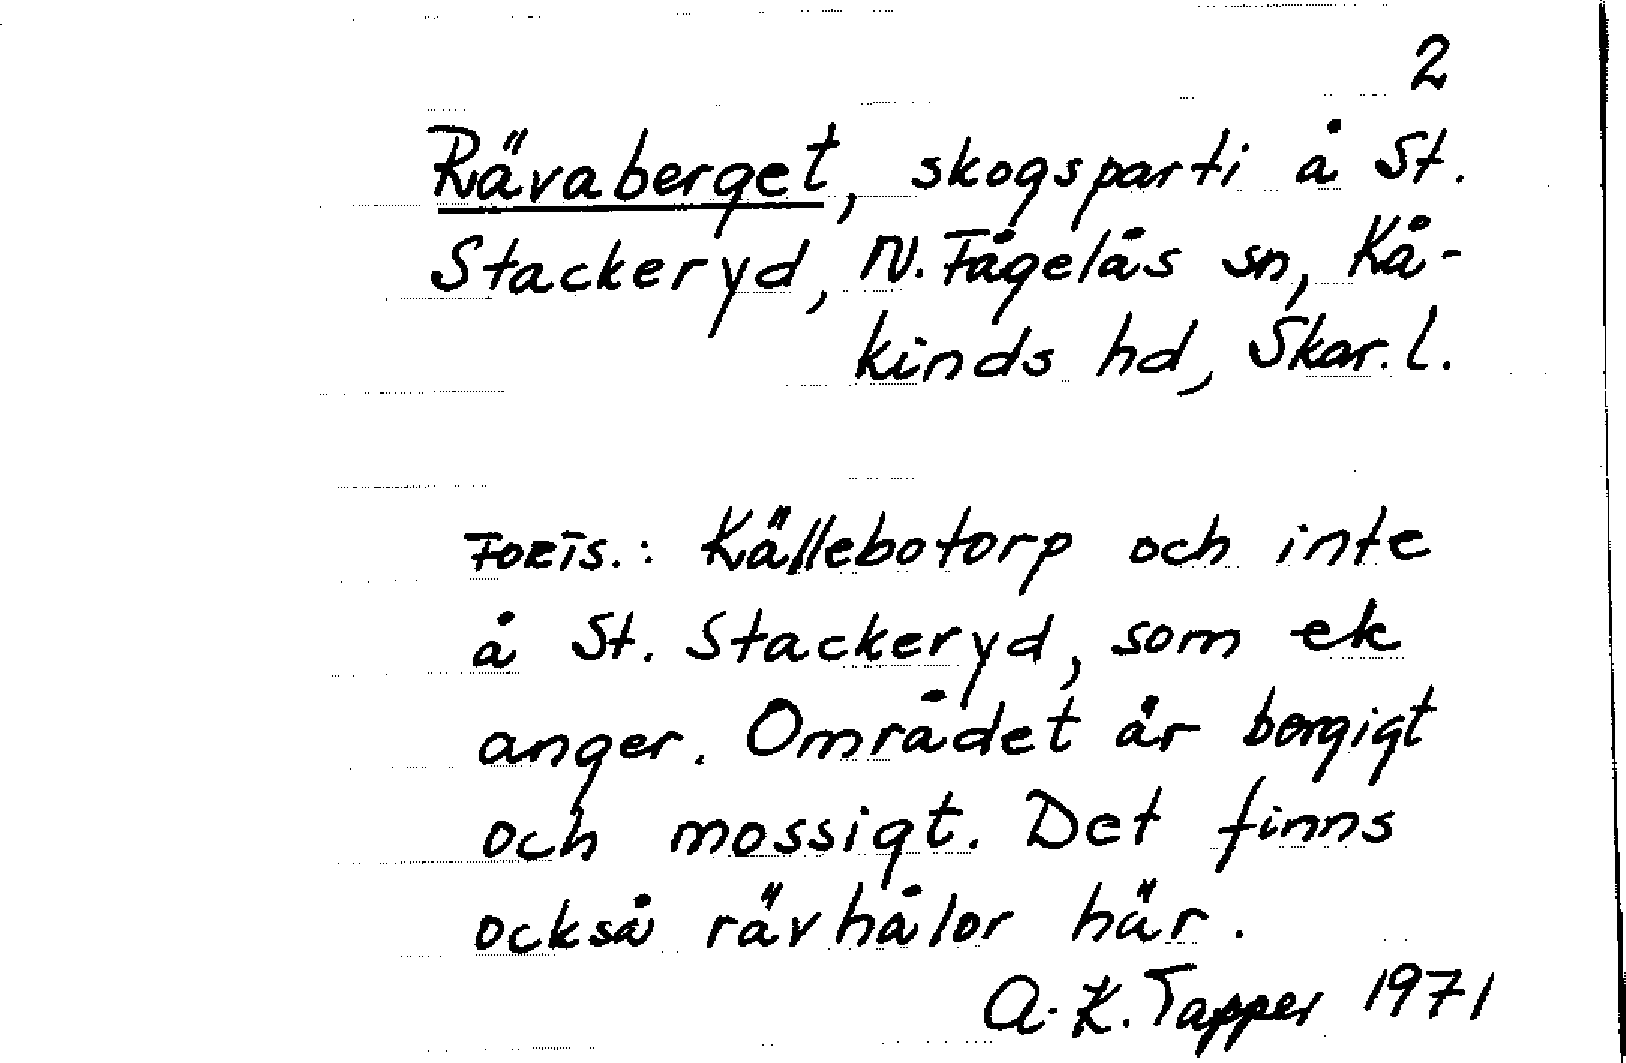 2
Rävaberget, skogsparti å St.
Stackeryd, N. Fågelås sn, Kå-
kinds hd, Skar. l.
FORTS.: Källebotorp och inte
å St. Stackeryd, som ek
anger. Området är bergigt
och mossigt. Det finns
också rävhålor här.
A. K. Tapper 1971